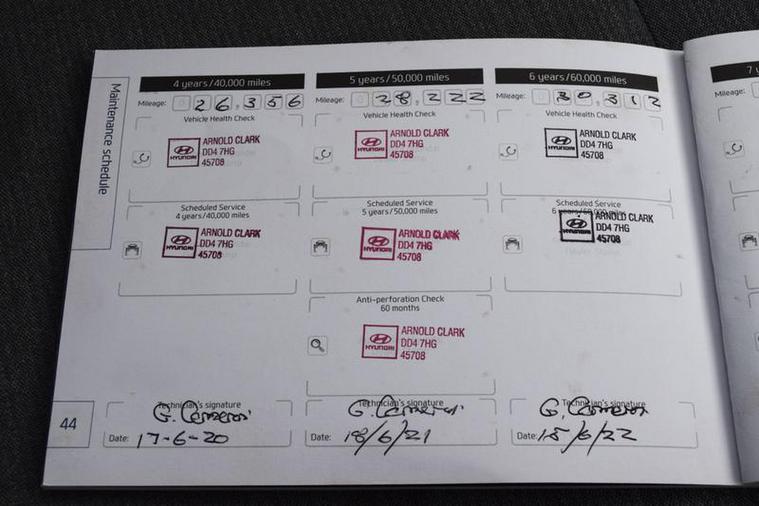 Maintenance schedule
4 years/40,000 miles
Mileage: 26,356
Vehicle Health Check
HYUNDAI
ARNOLD CLARK
DD4 7HG
45708
Scheduled Service
4 years/40,000 miles
HYUNDAI
ARNOLD CLARK
DD4 7HG
45708
Technician's signature
G. Cameron
Date: 17-6-20
5 years/50,000 miles
Mileage: 28,222
Vehicle Health Check
HYUNDAI
ARNOLD CLARK
DD4 7HG
45708
Scheduled Service
5 years/50,000 miles
HYUNDAI
ARNOLD CLARK
DD4 7HG
45708
Anti-perforation Check
60 months
HYUNDAI
ARNOLD CLARK
DD4 7HG
45708
Technician's signature
G. Cameron
Date: 18/6/21
6 years/60,000 miles
Mileage: 30,312
Vehicle Health Check
HYUNDAI
ARNOLD CLARK
DD4 7HG
45708
Scheduled Service
6 years/60,000 miles
HYUNDAI
ARNOLD CLARK
DD4 7HG
45708
Technician's signature
G. Cameron
Date: 15/6/22
44
7
Mileage: